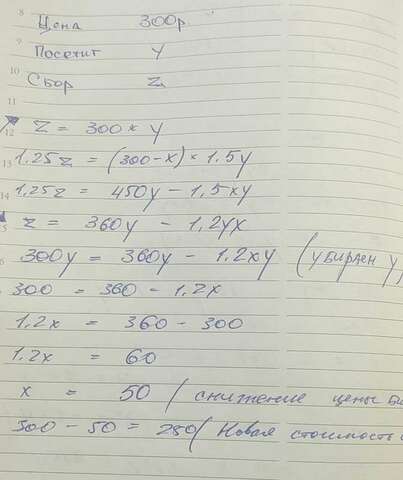 8 Цена 300р
9 Посетит y
10 Сбор z
11
12 z = 300 × y
13 1.25z = (300-x) × 1.5y
14 1.25z = 450y - 1,5xy
5 z = 360y - 1,2yx
6 300y = 360y - 1.2xy (убираем y)
300 = 360 - 1.2x
1.2x = 360 - 300
1.2x = 60
x = 50 (снижение цены
300 - 50 = 250 (Новая стоимость